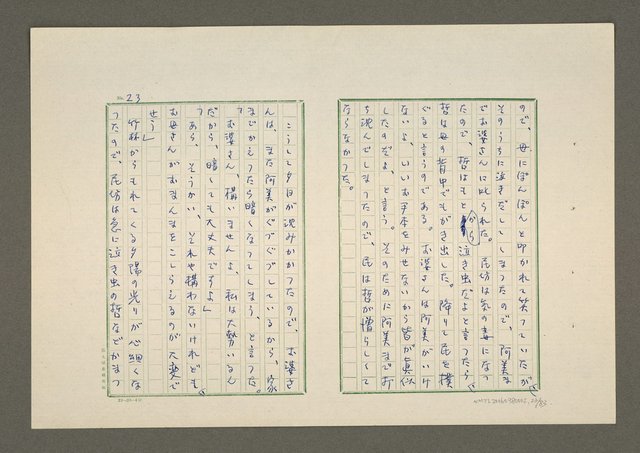 ので、母にぽんぽんと叩かれて笑つていたが、
そのうちに泣きだしてしまつたので、阿美ま
でお婆さんに叱られた。昆坊は気の毒になつ
たので、哲はもとから泣き虫だよと言つたら、
哲は母の背中でもがき出した。降りて昆を撲
ぐると言うのである。お婆さんは阿美がいけ
ないよ、いいお手本をみせないから皆が真似
したのだよ、と言う。そのために阿美までお
ち沈んでしまつたので、昆は哲が憎らしくて
ならなかつた。
No. 23
こうして夕日が沈みかかつたので、お婆さ
んは、また阿美がぐづぐづしているから、家
までかえつたら暗くなつてしまう、と言つた。
「お婆さん、構いませんよ、私は大勢いるん
だから、暗くても大丈夫ですよ」
「あら、そうかい、それや構わないけれども、
お母さんがおまんまをこしらえるのが大変で
せう」
竹林からもれてくる夕陽の光りが心細くな
つたので、昆坊は急に泣き虫の哲などかまつ